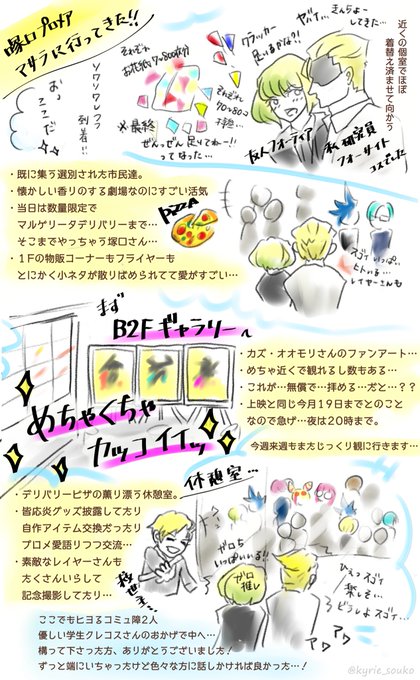 塚口プロメア
マサラに行ってきた!!
近くの個室でほぼ
着替え済ませて向かう
ヤバイ…きんちょーしてきた…
クラッカー
足りるかな?!
お花紙7〜800枚分
それぞれ
70〜80コ
※最終
ぜんっぜん足りねー!!
ってなった…
ソワソワしつつ
到着!!
おっ
ここだ
友人フォーティア
私研究員
フォーサイト
コスでした
・既に集う選別された方市民達。
・懐かしい香りのする劇場なのにすごい活気
・当日は数量限定で
マルゲリータデリバリーまで…
そこまでやっちゃう塚口さん…
・1Fの物販コーナーもフライヤーも
とにかく小ネタが散りばめられてて愛がすごい…
PIZZA
スゴイいっぱい
ヒトいる…
レイヤーさんも
まず
B2Fギャラリーへ
めちゃくちゃ
カッコイイッ
・カズ・オオモリさんのファンアート…
・めちゃ近くで観れるし数もある…
・これが…無償で…拝める…だと…??
・上映と同じ今月19日までとのこと
なので急げ…夜は20時まで。
今週来週もまたじっくり観に行きます…
休憩室…
・デリバリーピザの薫り漂う休憩室。
・省広炎グッズ披露してたり
自作アイテム交換だったり
プロメ愛語りつつ交流…
・素敵なレイヤーさんも
たくさんいらして
記念撮影してたり…
ガロも
いっぱいいる!!
ガロ
推し
ひぇっスゴイ
楽しそ…
どうしよスゴイ…
アワ
アワ
ここでもヒヨるコミュ障2人
優しい学生クレコスさんのおかげで中へ…
構って下さった方、ありがとうございました!
ずっと端にいちゃったけど色々な方に話しかければ良かった…!
@kyrie_souko